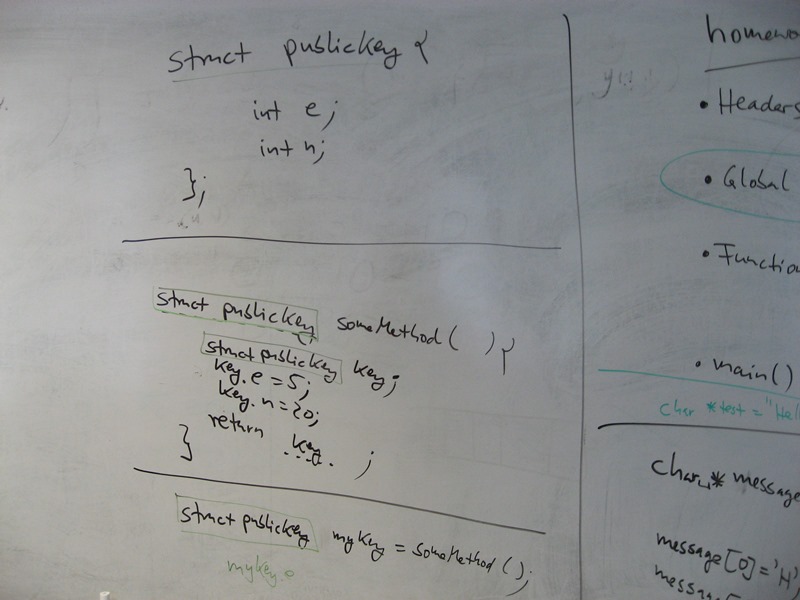 struct publicKey {
int e;
int n;
};
struct publicKey someMethod( ){
struct publicKey key;
key.e = 5;
key.n = 20;
return key ;
}
struct publicKey myKey = someMethod();
myKey.e
• Headers
• Global
• main()
char *test = "Hell
char * message
message[0]='H';